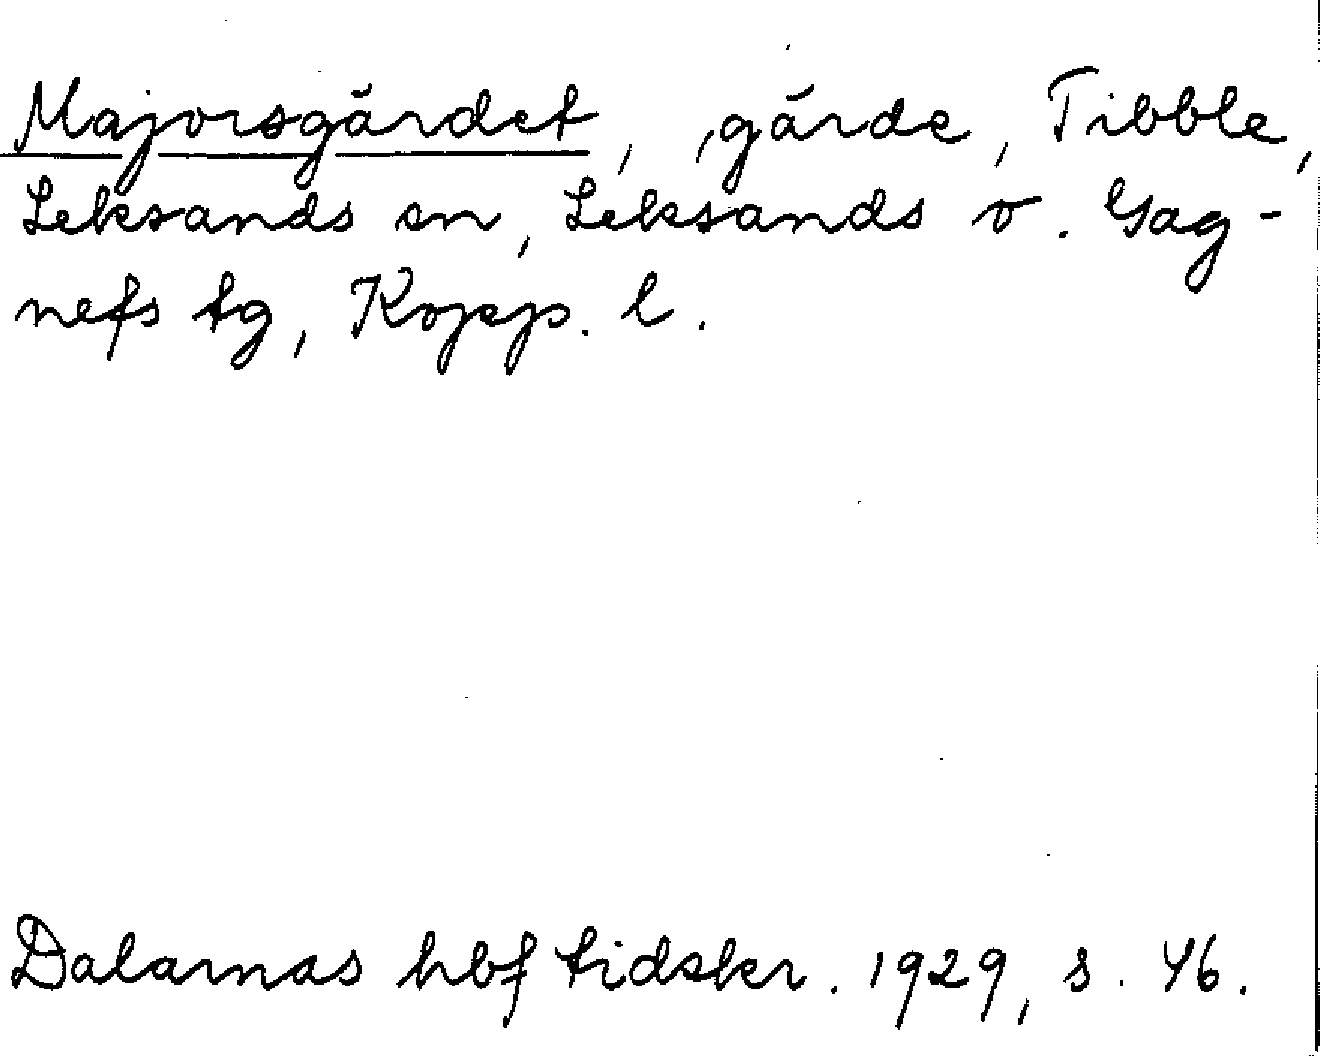 Majorsgärdet, gärde, Tibble,
Leksands sn, Leksands o. Gag-
nefs tg, Kopp. l.
Dalarnas hbf tidskr. 1929, s. 46.